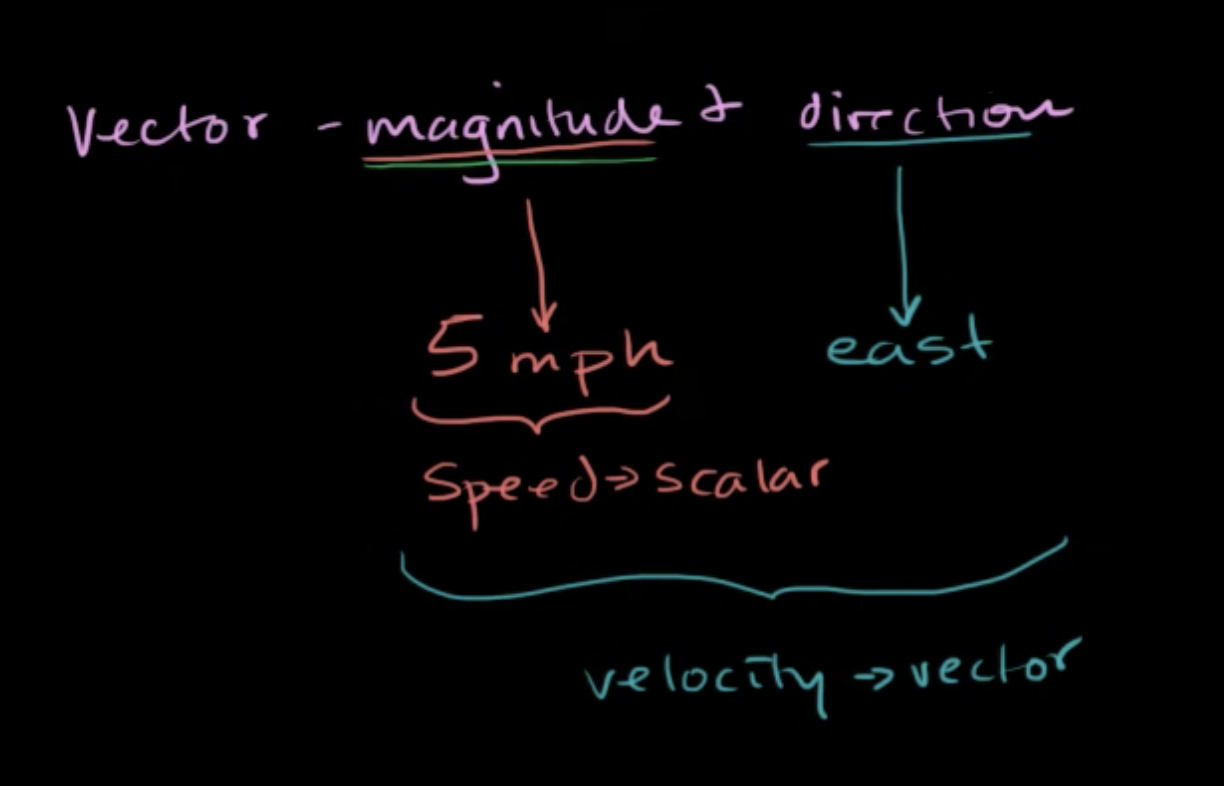 Vector - magnitude & direction
5 mph east
Speed → scalar
velocity → vector